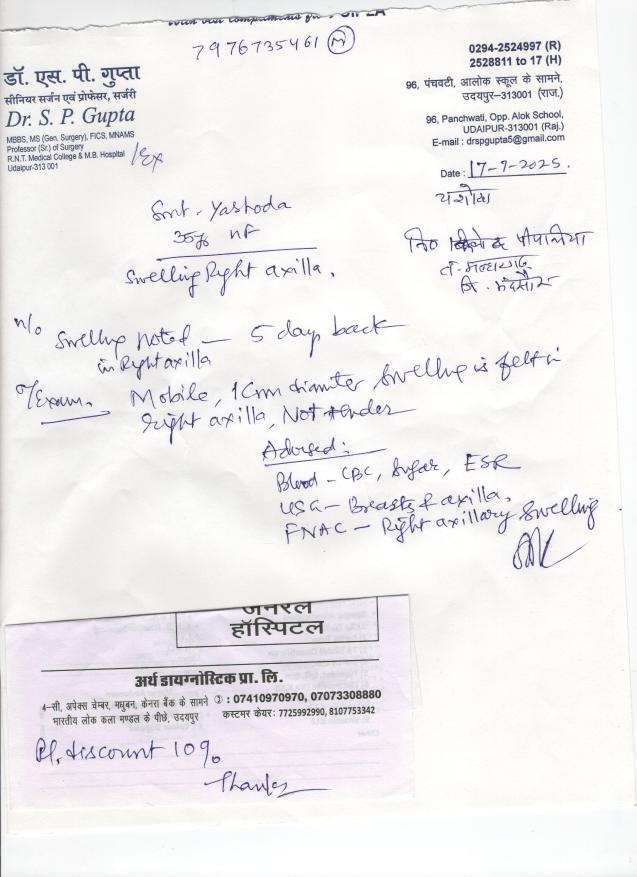 With best compliments
7976735461 (M)
डॉ. एस. पी. गुप्ता
सीनियर सर्जन एवं प्रोफेसर, सर्जरी
Dr. S. P. Gupta
MBBS, MS (Gen. Surgery), FICS, MNAMS
Professor (Sr.) of Surgery
R.N.T. Medical College & M.B. Hospital
Udaipur-313 001
0294-2524997 (R)
2528811 to 17 (H)
96, पंचवटी, आलोक स्कूल के सामने,
उदयपुर–313001 (राज.)
96, Panchwati, Opp. Alok School,
UDAIPUR-313001 (Raj.)
E-mail : drspgupta5@gmail.com
Date : 17-7-2025.
यशोदा
पीपलिया
Smt. Yashoda
35y
Swelling Right axilla.
Swelling noted — 5 day back
in Right axilla
O/Exam. Mobile, 1cm diameter swelling is felt in
Right axilla, Not tender
Advised:
Blood - CBC, Sugar, ESR
USG - Breasts & axilla.
FNAC - Right axillary swelling
जनरल
हॉस्पिटल
अर्थ डायग्नोस्टिक प्रा. लि.
4-सी, अपेक्स चेम्बर, मधुबन, केनरा बैंक के सामने ✆ : 07410970970, 07073308880
भारतीय लोक कला मण्डल के पीछे, उदयपुर कस्टमर केयर: 7725992990, 8107753342
Pl. discount 10%
Thanks